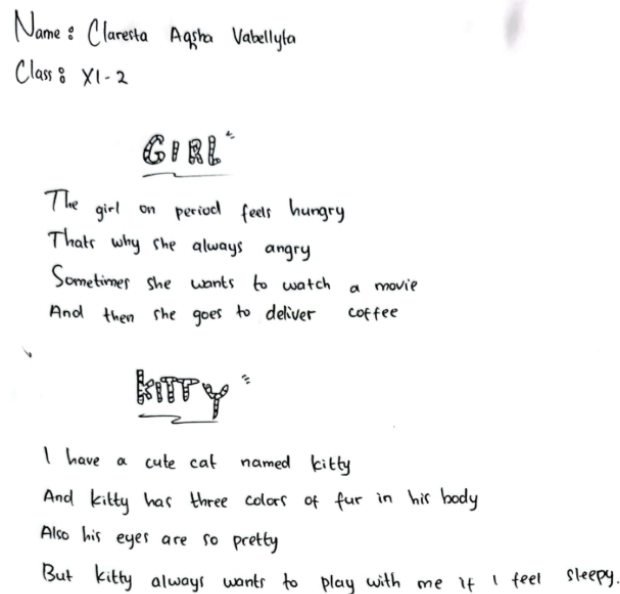 Name : Claresta Aqsha Vabellyta
Class : XI-2
GIRL
The girl on period feels hungry
Thats why she always angry
Sometimes she wants to watch a movie
And then she goes to deliver coffee
KITTY
I have a cute cat named kitty
And kitty has three colors of fur in his body
Also his eyes are so pretty
But kitty always wants to play with me if I feel sleepy.